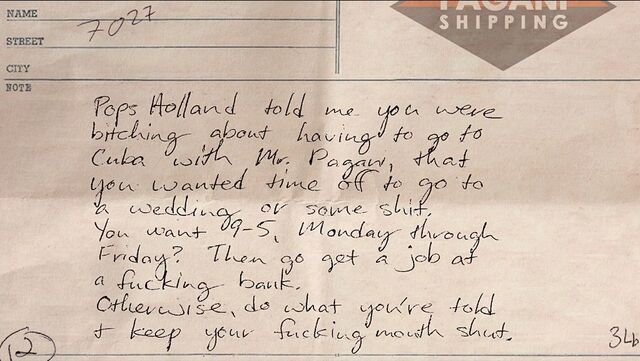 NAME
7027
PAGANI
SHIPPING
STREET
CITY
NOTE
Pops Holland told me you were
bitching about having to go to
Cuba with Mr. Pagani, that
you wanted time off to go to
a wedding or some shit.
You want 9-5, Monday through
Friday? Then go get a job at
a fucking bank.
Otherwise, do what you're told
+ keep your fucking mouth shut.
12